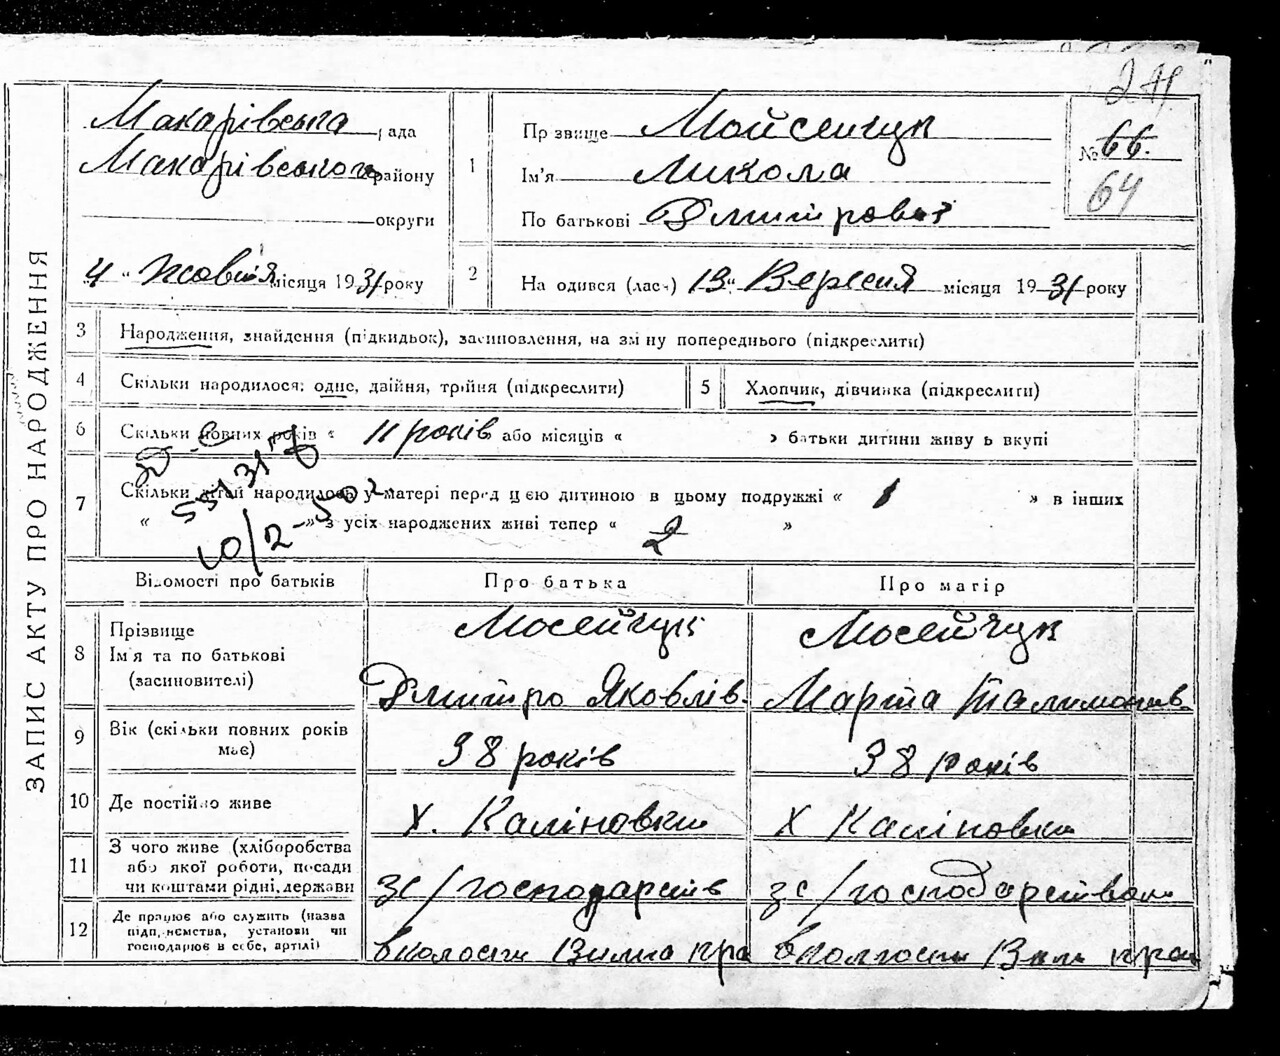 241
ЗАПИС АКТУ ПРО НАРОДЖЕННЯ
Макарівська рада
Макарівського району
округи
"4" Жовтня місяця 1931 року
1
Прзвище Мойсейчук
Ім'я Микола
По батькові Дмитрович
№ 66.
64
2
На одився (лась) 13 " Вересня місяця 1931 року
3 Народження, знайдення (підкидьок), засиновлення, на зміну попереднього (підкреслити)
4 Скільки народилося: одне, двійня, трійня (підкреслити)
5 Хлопчик, дівчинка (підкреслити)
6 Скільки повних років « 11 років або місяців « » батьки дитини живуть вкупі
7 Скільки дітей народилось у матері перед цією дитиною в цьому подружжі « 1 » в інших
« » з усіх народжених живі тепер « 2 »
Відомості про батьків
Про батька
Про матір
8 Прізвище
Ім'я та по батькові
(засиновителі)
Мосейчук
Дмитро Яковлів.
Мосейчук
Марта
9 Вік (скільки повних років має)
38 років
38 років
10 Де постійно живе
Х. Каліновка
Х Каліновка
11 З чого живе (хліборобства
або якої роботи, посади
чи коштами рідні, держави
зс/господарств
зс/господарством
12 Де працює або служить (назва
підприємства, установи чи
господарює в себе, артілі)